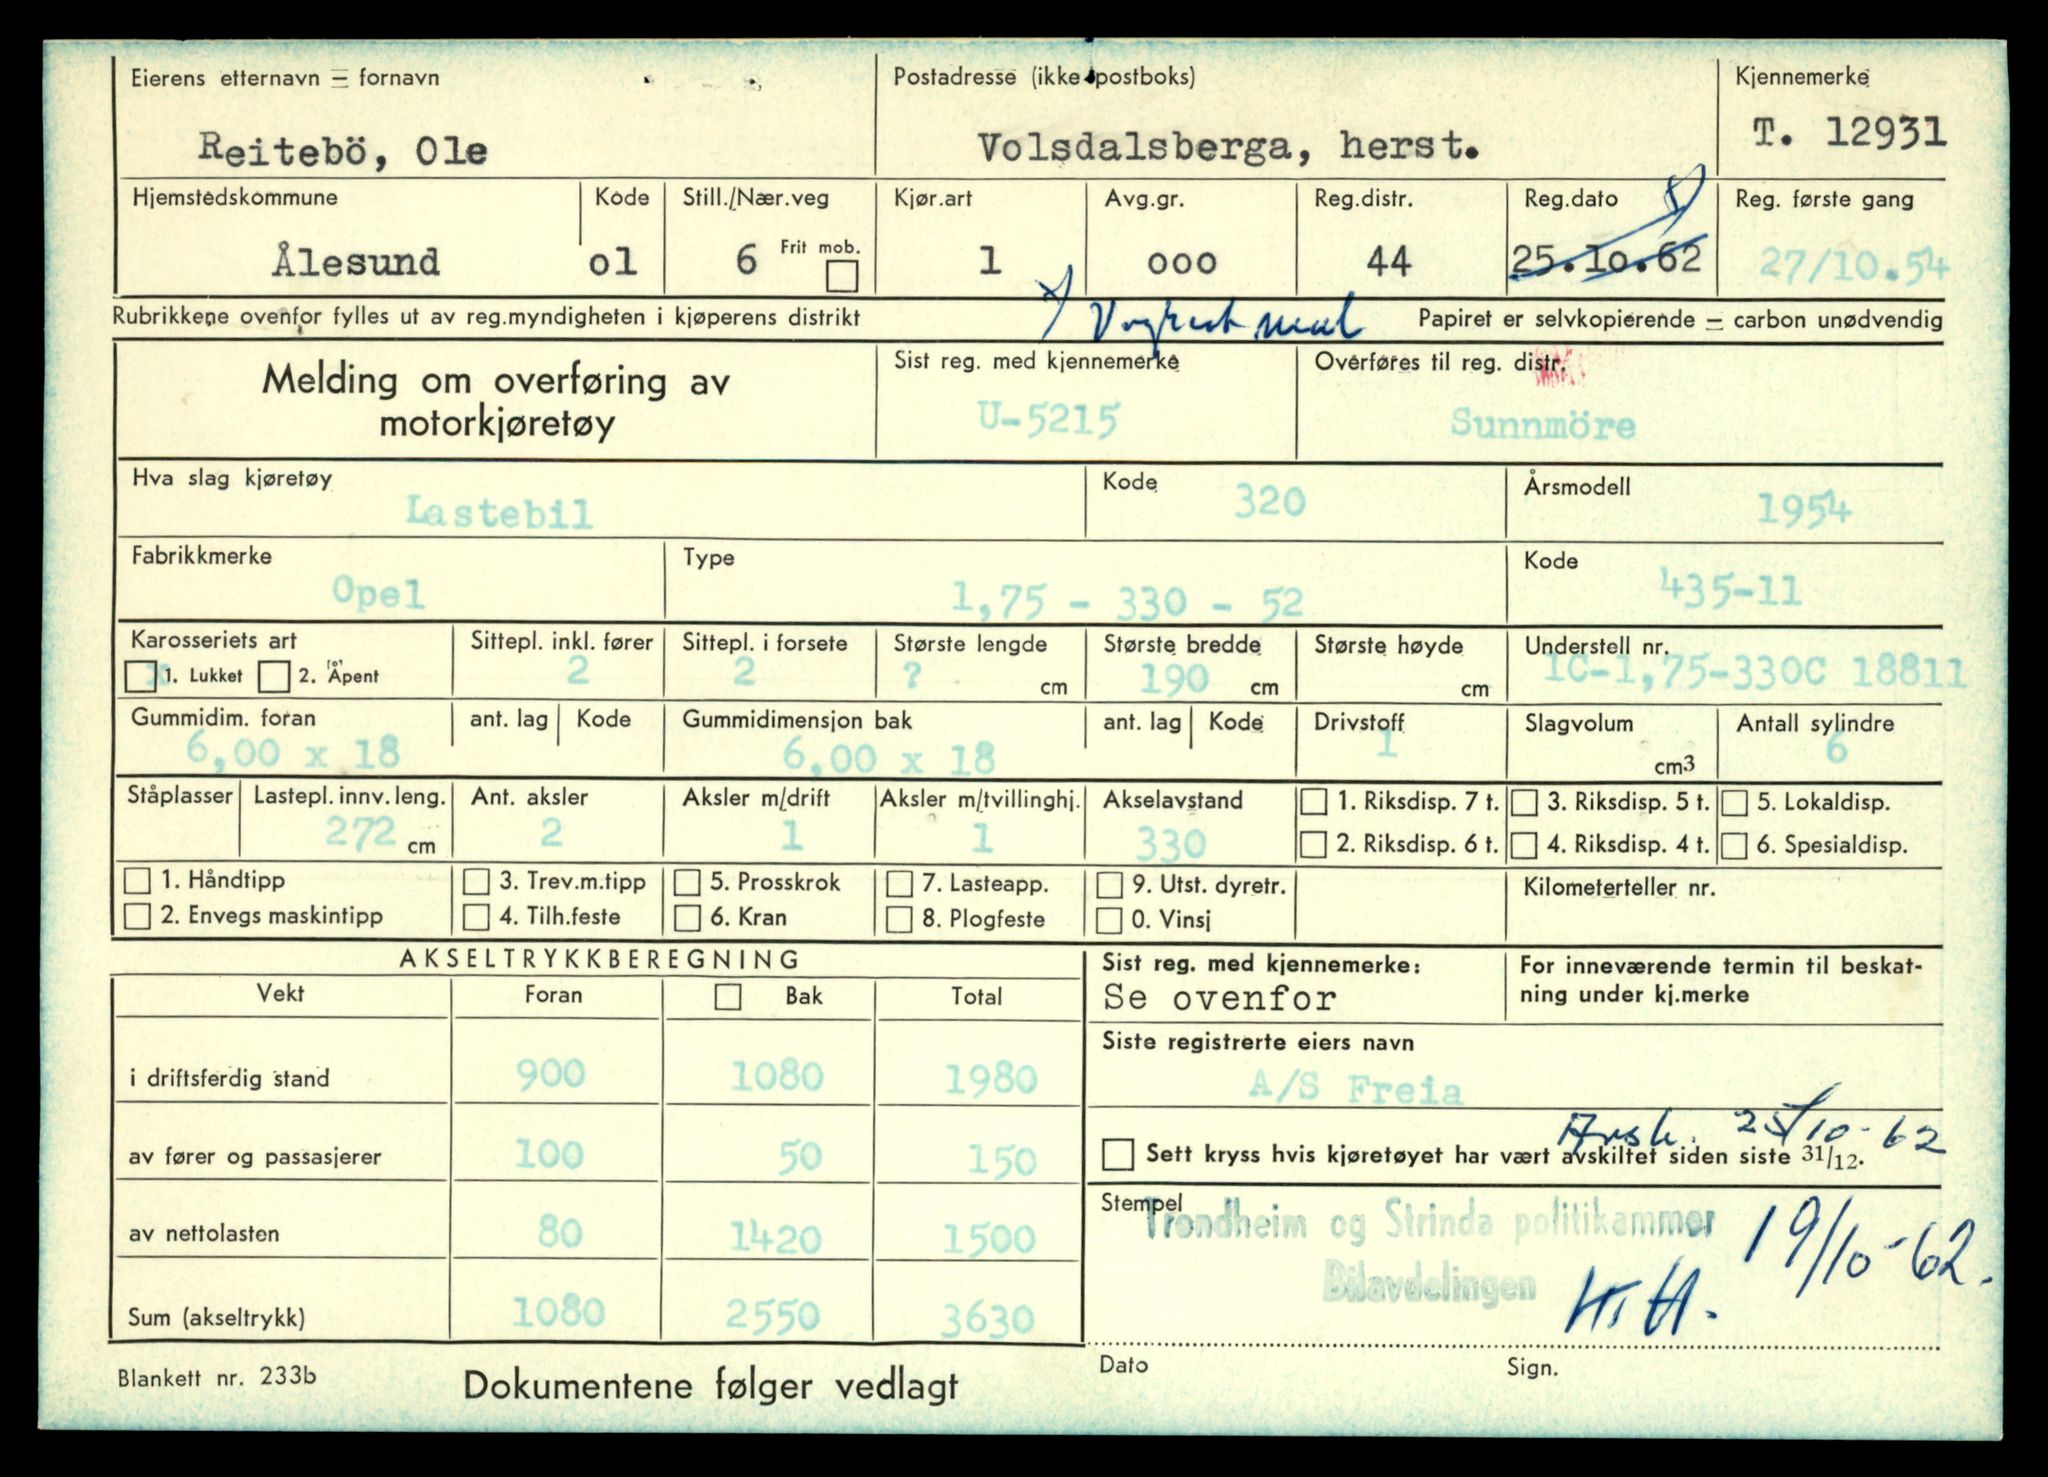 Eierens etternavn – fornavn
Postadresse (ikke postboks)
Kjennemerke
Reitebö, Ole
Volsdalsberga, herst.
T. 12931
Hjemstedskommune
Kode
Still./Nær.veg
Kjør.art
Avg.gr.
Reg.distr.
Reg.dato
Reg. første gang
Ålesund
ol
6
Frit mob.
1
ooo
44
25.10.62
27/10.54
Rubrikkene ovenfor fylles ut av reg.myndigheten i kjøperens distrikt
Papiret er selvkopierende – carbon unødvendig
Melding om overføring av
motorkjøretøy
Sist reg. med kjennemerke
Overføres til reg. distr.
U-5215
Sunnmöre
Hva slag kjøretøy
Kode
Årsmodell
Lastebil
320
1954
Fabrikkmerke
Type
Kode
Opel
1,75 - 330 - 52
435-11
Karosseriets art
Sittepl. inkl. fører
Sittepl. i forsete
Største lengde
Største bredde
Største høyde
Understell nr.
x 1. Lukket 2. Åpent
2
2
? cm
190 cm
cm
1C-1,75-330C 18811
Gummidim. foran
ant. lag
Kode
Gummidimensjon bak
ant. lag
Kode
Drivstoff
Slagvolum
Antall sylindre
6,00 x 18
6,00 x 18
1
cm3
6
Ståplasser
Lastepl. innv. leng.
Ant. aksler
Aksler m/drift
Aksler m/tvillinghj.
Akselavstand
1. Riksdisp. 7 t.
3. Riksdisp. 5 t.
5. Lokaldisp.
272 cm
2
1
1
330
2. Riksdisp. 6 t.
4. Riksdisp. 4 t.
6. Spesialdisp.
1. Håndtipp
3. Trev.m.tipp
5. Prosskrok
7. Lasteapp.
9. Utst. dyretr.
Kilometerteller nr.
2. Envegs maskintipp
4. Tilh.feste
6. Kran
8. Plogfeste
0. Vinsj
AKSELTRYKKBEREGNING
Sist reg. med kjennemerke:
For inneværende termin til beskat-
ning under kj.merke
Vekt
Foran
Bak
Total
Se ovenfor
Siste registrerte eiers navn
i driftsferdig stand
900
1080
1980
A/S Freia
25/10-62
av fører og passasjerer
100
50
150
Sett kryss hvis kjøretøyet har vært avskiltet siden siste 31/12.
Stempel
Trondheim og Strinda politikammer
Bilavdelingen
19/10-62.
av nettolasten
80
1420
1500
H.H.
Sum (akseltrykk)
1080
2550
3630
Dato
Sign.
Blankett nr. 233b
Dokumentene følger vedlagt